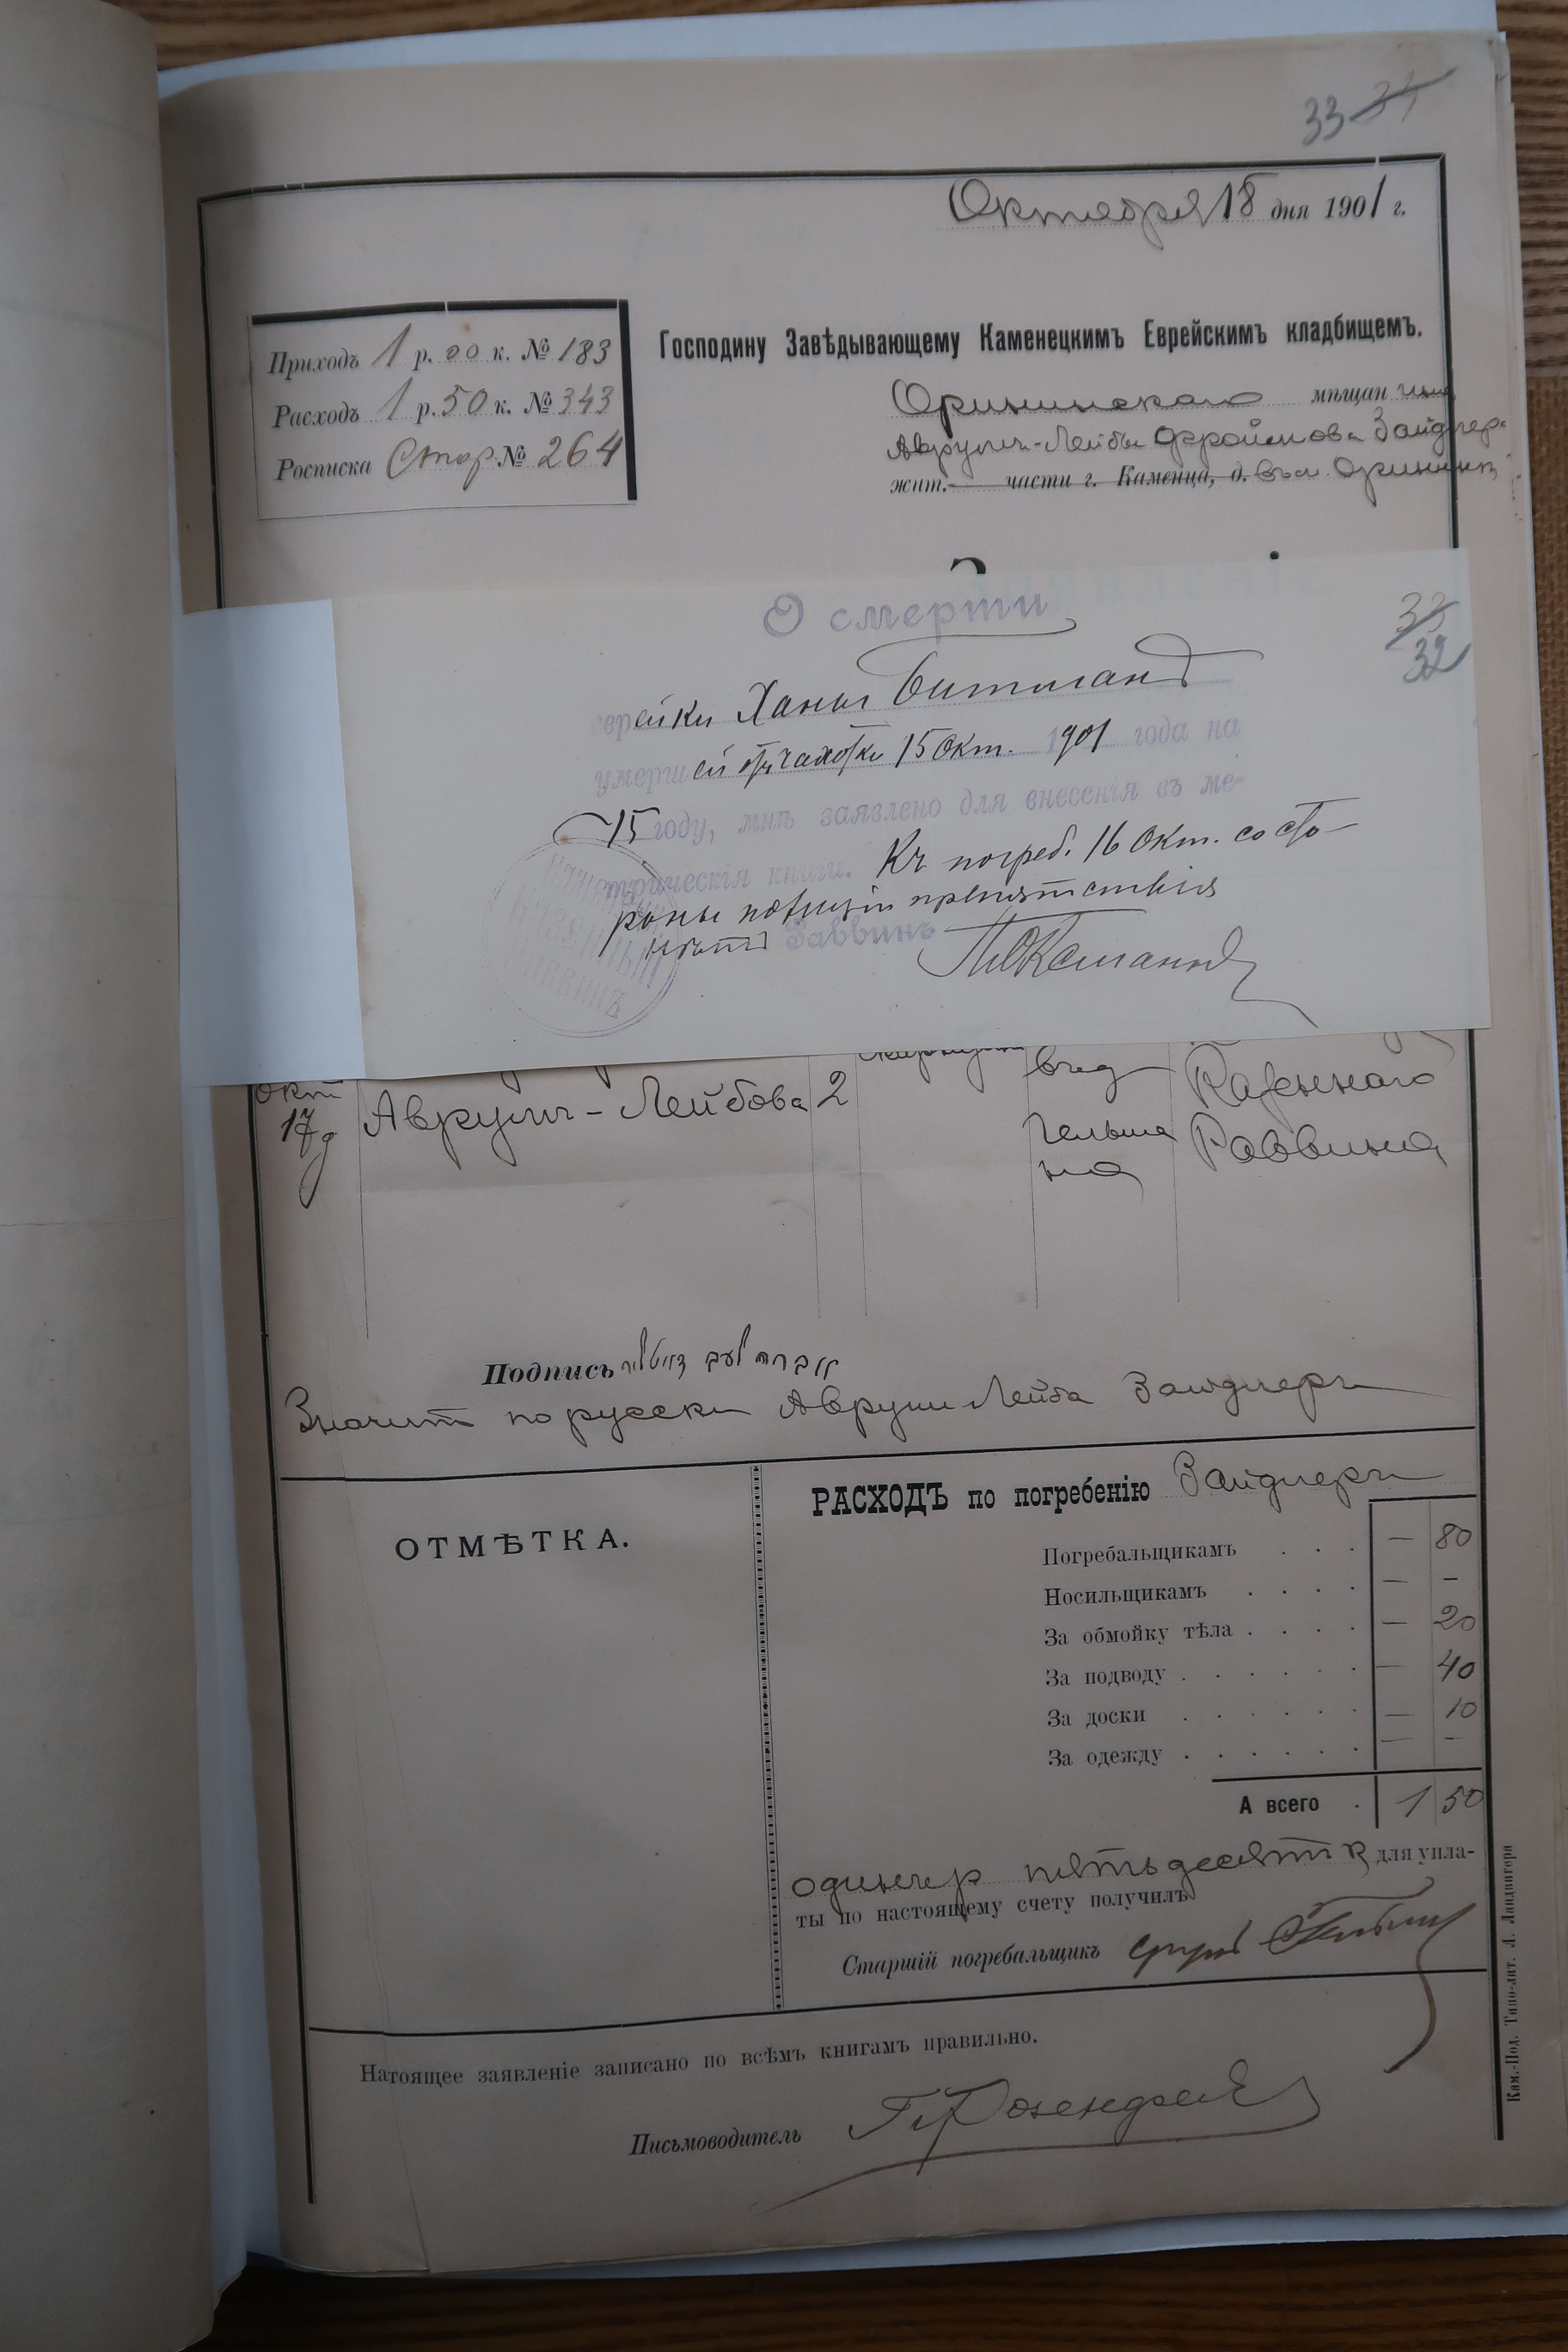 33 34
Октября 18 дня 1901 г.
Приходъ 1 р. 00 к. № 183
Расходъ 1 р. 50 к. № 343
Росписка Стор. № 264
Господину Завѣдывающему Каменецкимъ Еврейскимъ кладбищемъ.
Орининскаго мѣщанина
Аврумъ-Лейбы Фроимова Зайдлера
жит. части г. Каменца, д. въ м. Орининъ
33
32
О смерти
еврейки Ханы
умершей отъ чахотки 15 Окт. 1901 года на
15 году, мнѣ заявлено для внесенія въ ме-
трическія книги. Къ погреб. 16 Окт. со сто-
роны полиціи препятствія
нѣтъ Раввинъ
Окт
17 д Аврумъ-Лейбова 2 вид Казеннаго
Гельмана Раввина
Подпись
Значит по русски Аврум Лейба Зайдлеръ
ОТМѢТКА.
РАСХОДЪ по погребенію Зайдлеръ
Погребальщикамъ . . . — 80
Носильщикамъ . . . . — -
За обмойку тѣла . . . . — 20
За подводу . . . . . . — 40
За доски . . . . . . — 10
За одежду . . . . . . — -
А всего . 1 50
один р пятьдесят к для упла-
ты по настоящему счету получилъ
Старшій погребальщикъ
Натоящее заявленіе записано по всѣмъ книгамъ правильно.
Письмоводитель
Кам.-Под. Типо-лит. Л. Ландвигера